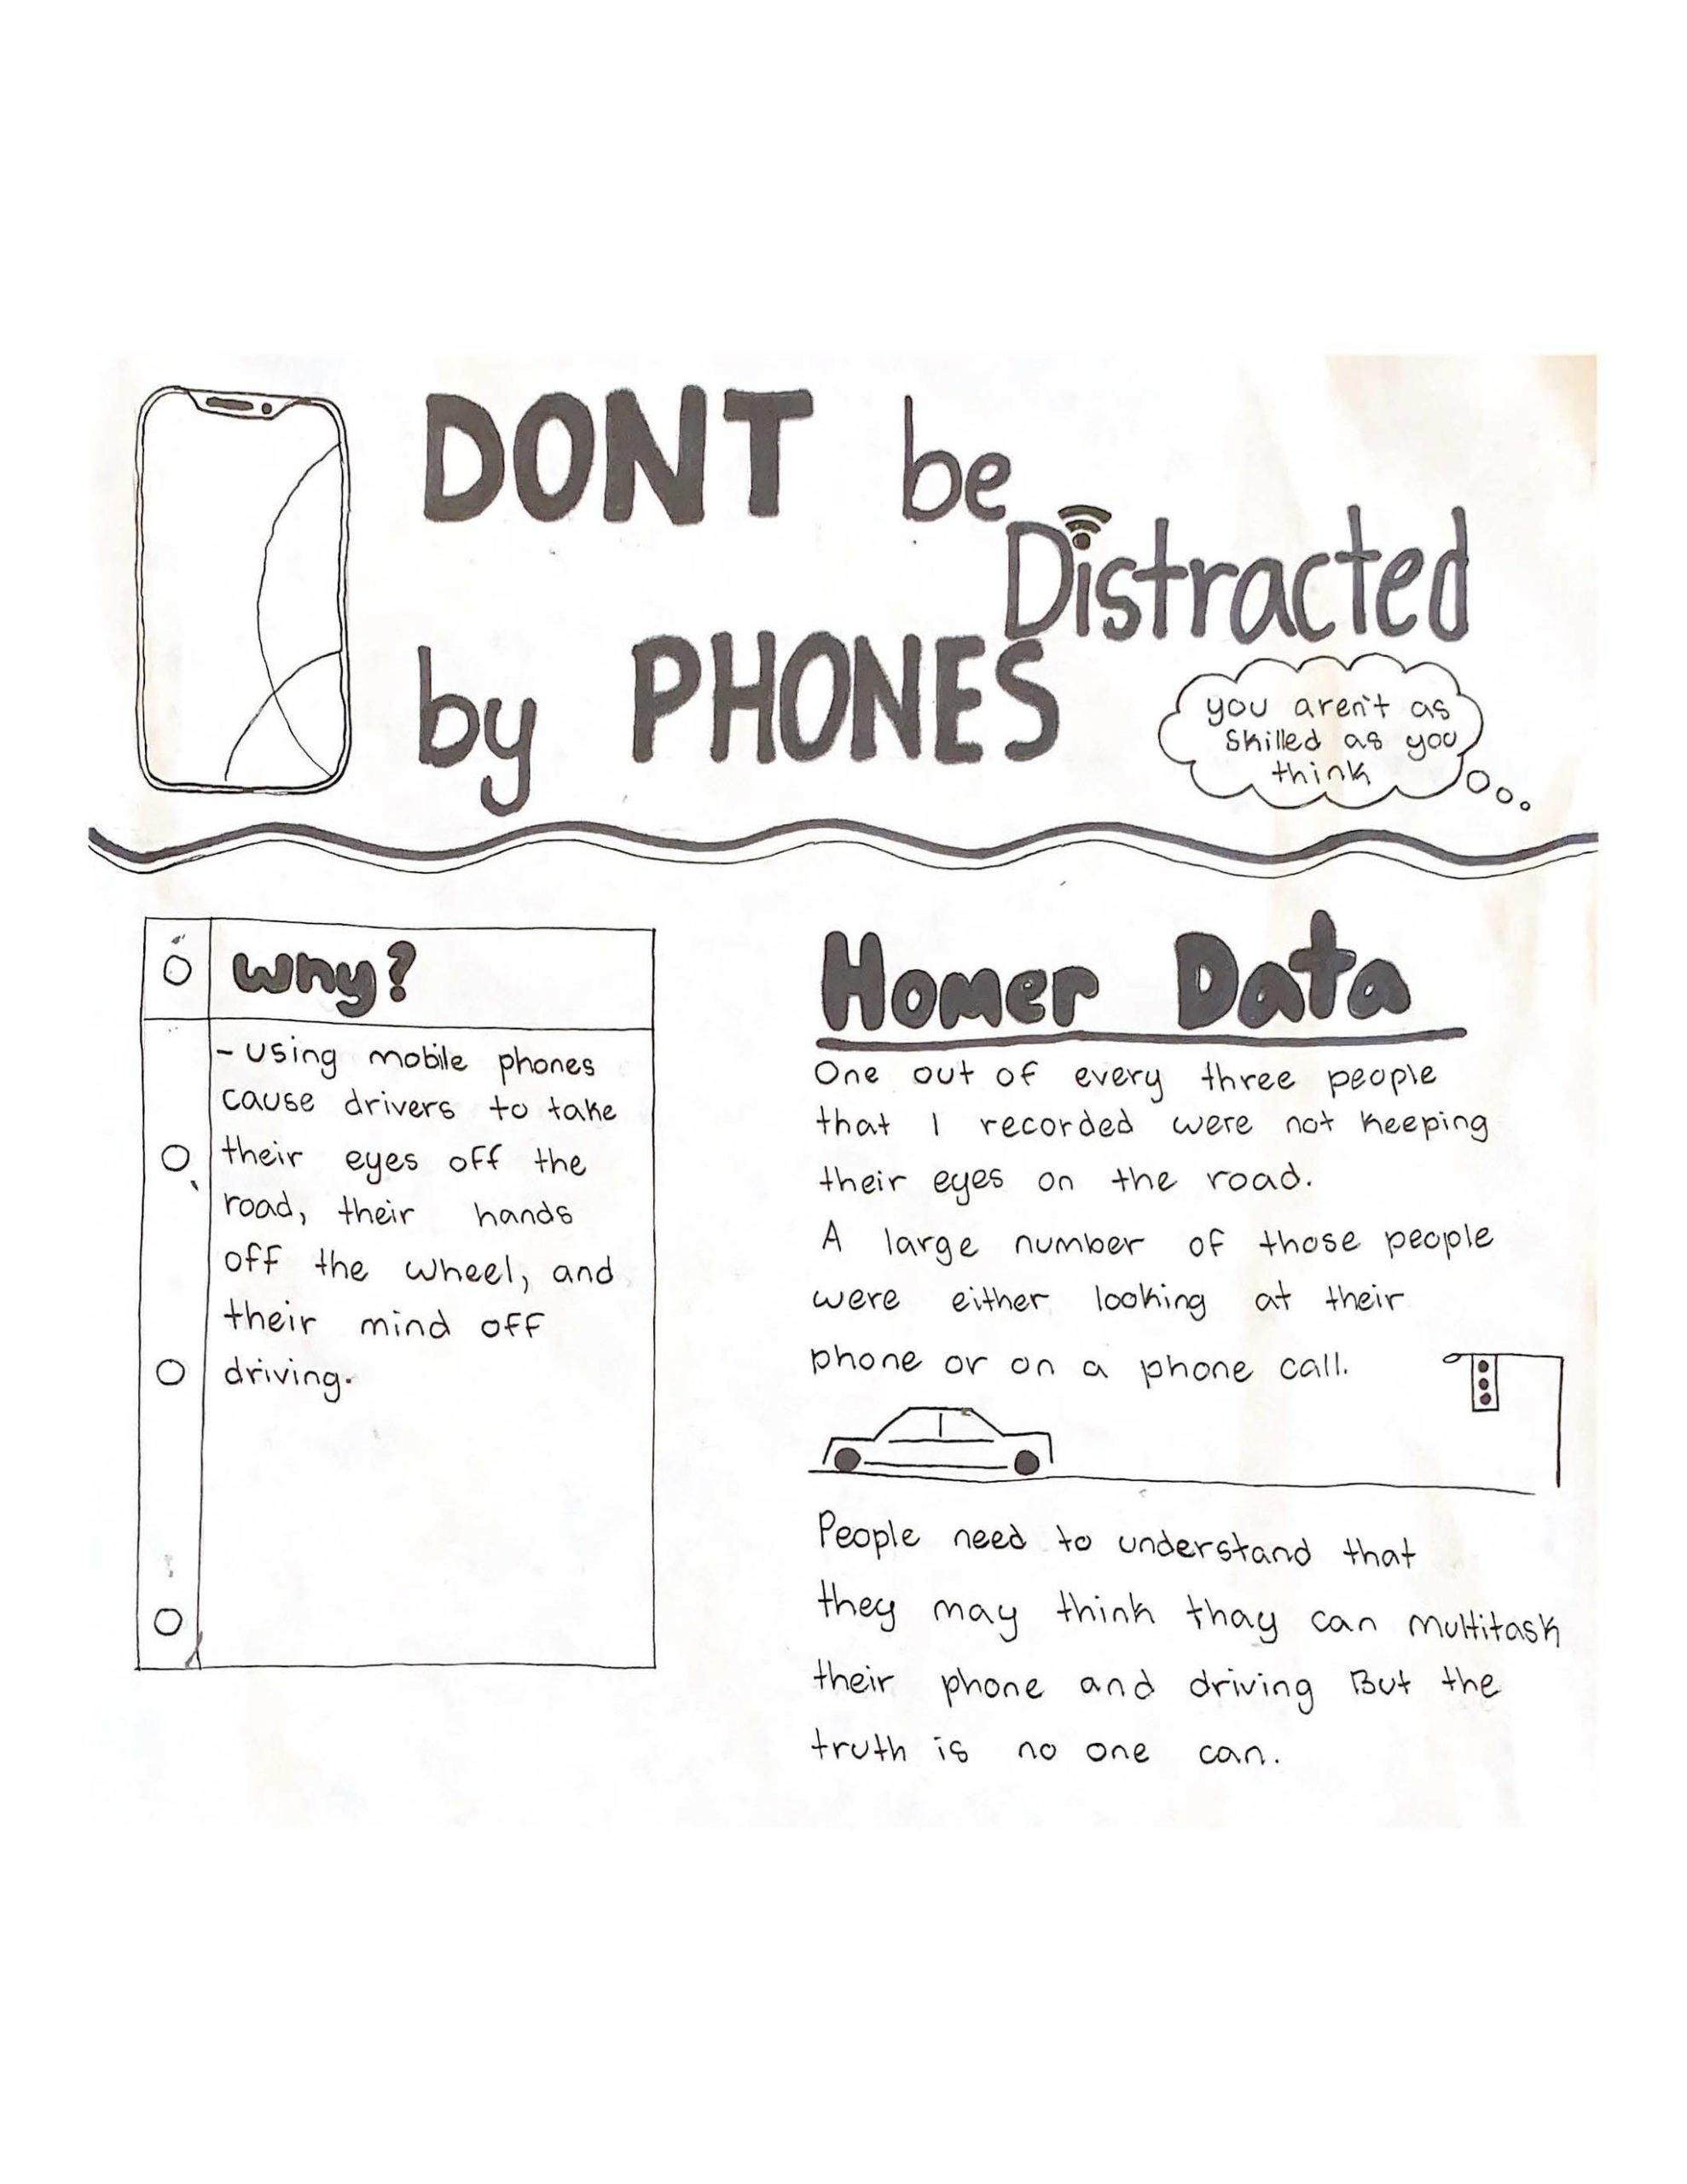 DONT be
Distracted
by PHONES
you aren't as
skilled as you
think
Why?
- using mobile phones
cause drivers to take
their eyes off the
road, their hands
off the wheel, and
their mind off
driving.
Homer Data
One out of every three people
that I recorded were not keeping
their eyes on the road.
A large number of those people
were either looking at their
phone or on a phone call.
People need to understand that
they may think thay can multitask
their phone and driving But the
truth is no one can.